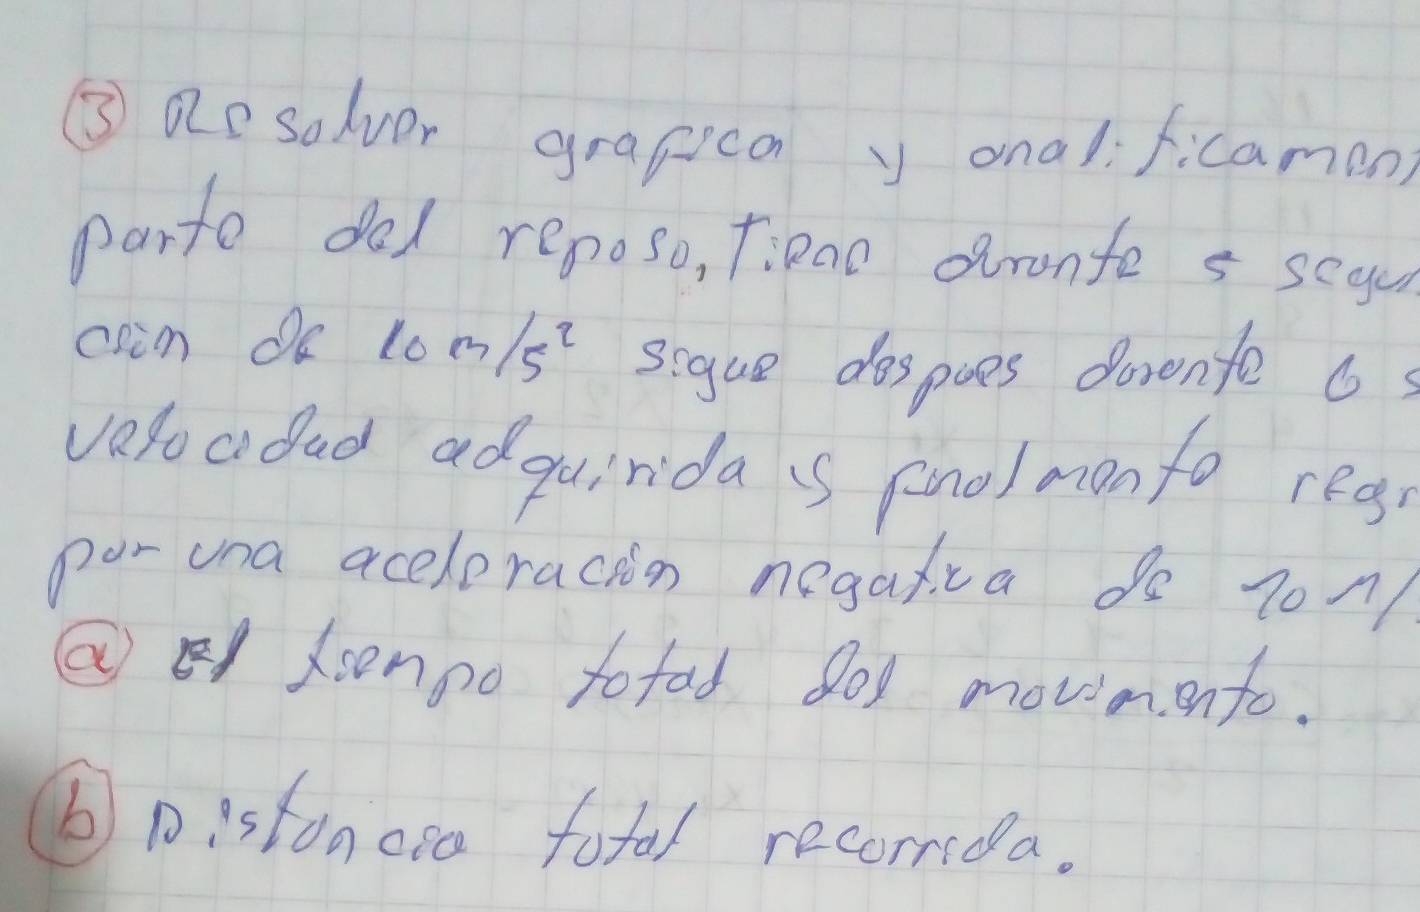 ③ Resolver grafica y analiticamen
parte del reposo, Tiene durante 5 segu
ción de 10 m/s² sigue despues durante 6 s
velocidad adquirida y finalmente regr
por una aceleración negativa de 10 m/
ⓐ El tiempo total del movimiento.
ⓑ Distancia total recorrida.